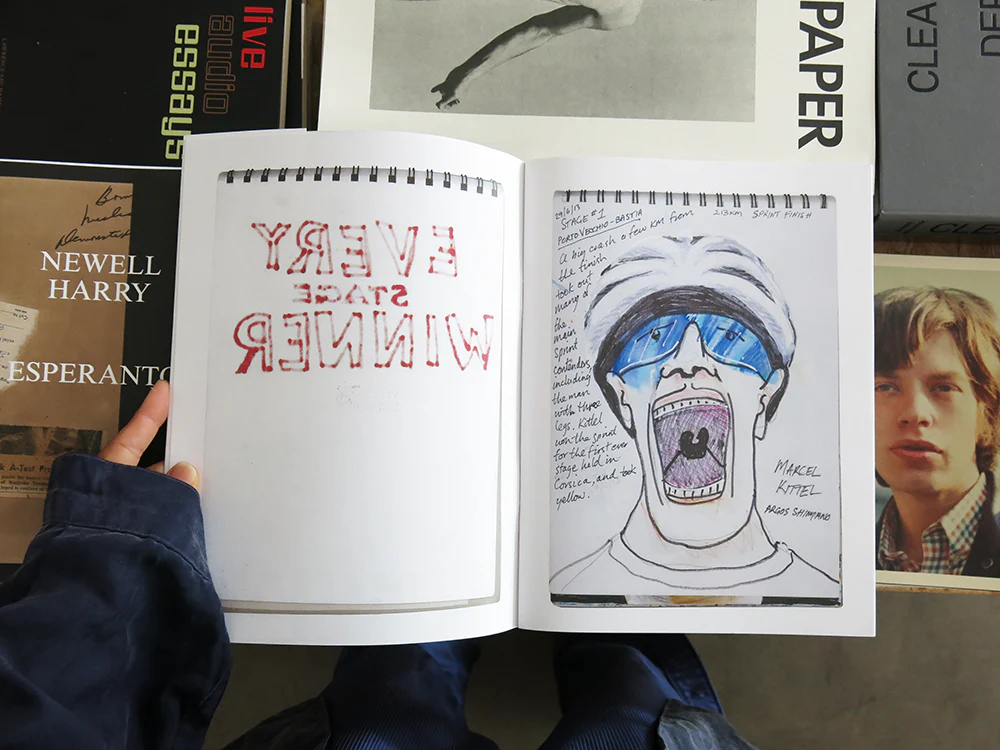 live
audio
essays
PAPER
CLEA
DEF
// CLE
NEWELL
HARRY
ESPERANTO
A-Test
EVERY
STAGE
WINNER
29/6/13
STAGE #1
213KM SPRINT FINISH
PORTO VECCHIO - BASTIA
A big crash a few km from
the finish
took out
many of
the
main
Sprint
contenders,
including
the man
with three
legs. Kittel
won the sprint
for the first ever
stage held in
Corsica, and took
yellow.
MARCEL
KITTEL
ARGOS SHIMANO